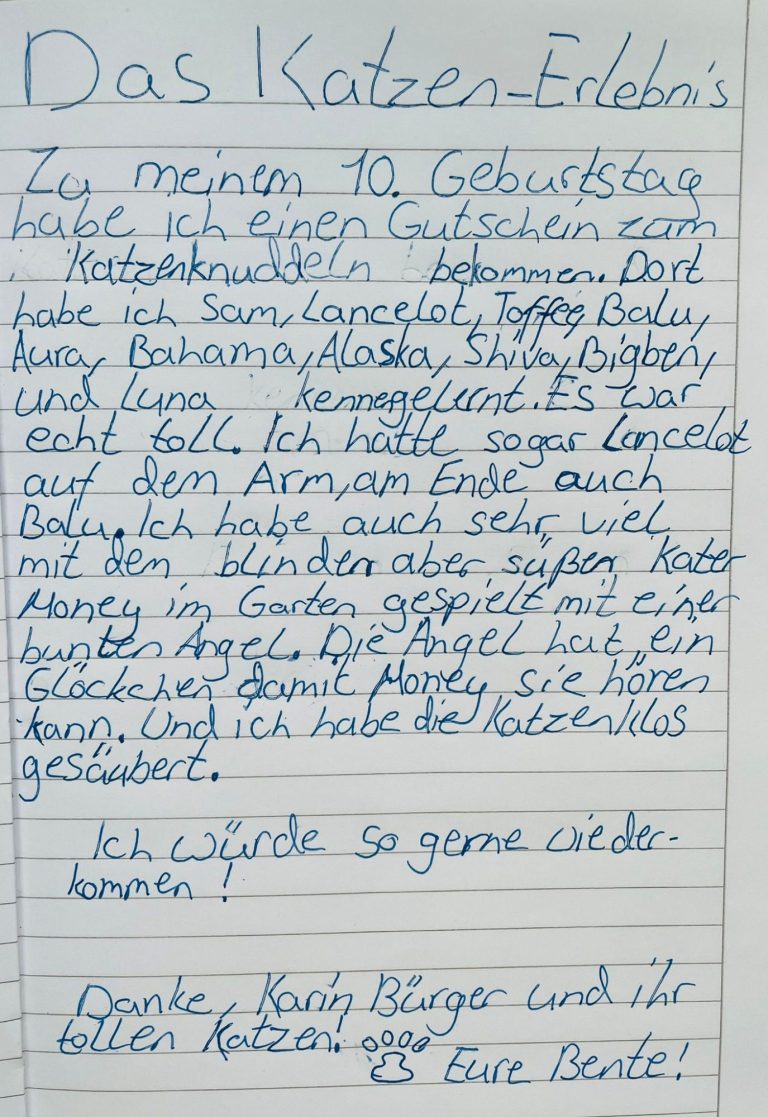 Das Katzen-Erlebnis
Zu meinem 10. Geburtstag
habe ich einen Gutschein zum
Katzenknuddeln bekommen. Dort
habe ich Sam, Lancelot, Toffee, Balu,
Aura, Bahama, Alaska, Shiva, Bigben,
und Luna kennegelernt. Es war
echt toll. Ich hatte sogar Lancelot
auf dem Arm, am Ende auch
Balu. Ich habe auch sehr viel
mit dem blinden aber süßen Kater
Money im Garten gespielt mit einer
bunten Angel. Die Angel hat ein
Glöckchen damit Money sie hören
kann. Und ich habe die Katzenklos
gesäubert.
Ich würde so gerne wieder-
kommen!
Danke, Karin Bürger und ihr
tollen Katzen!
Eure Bente!